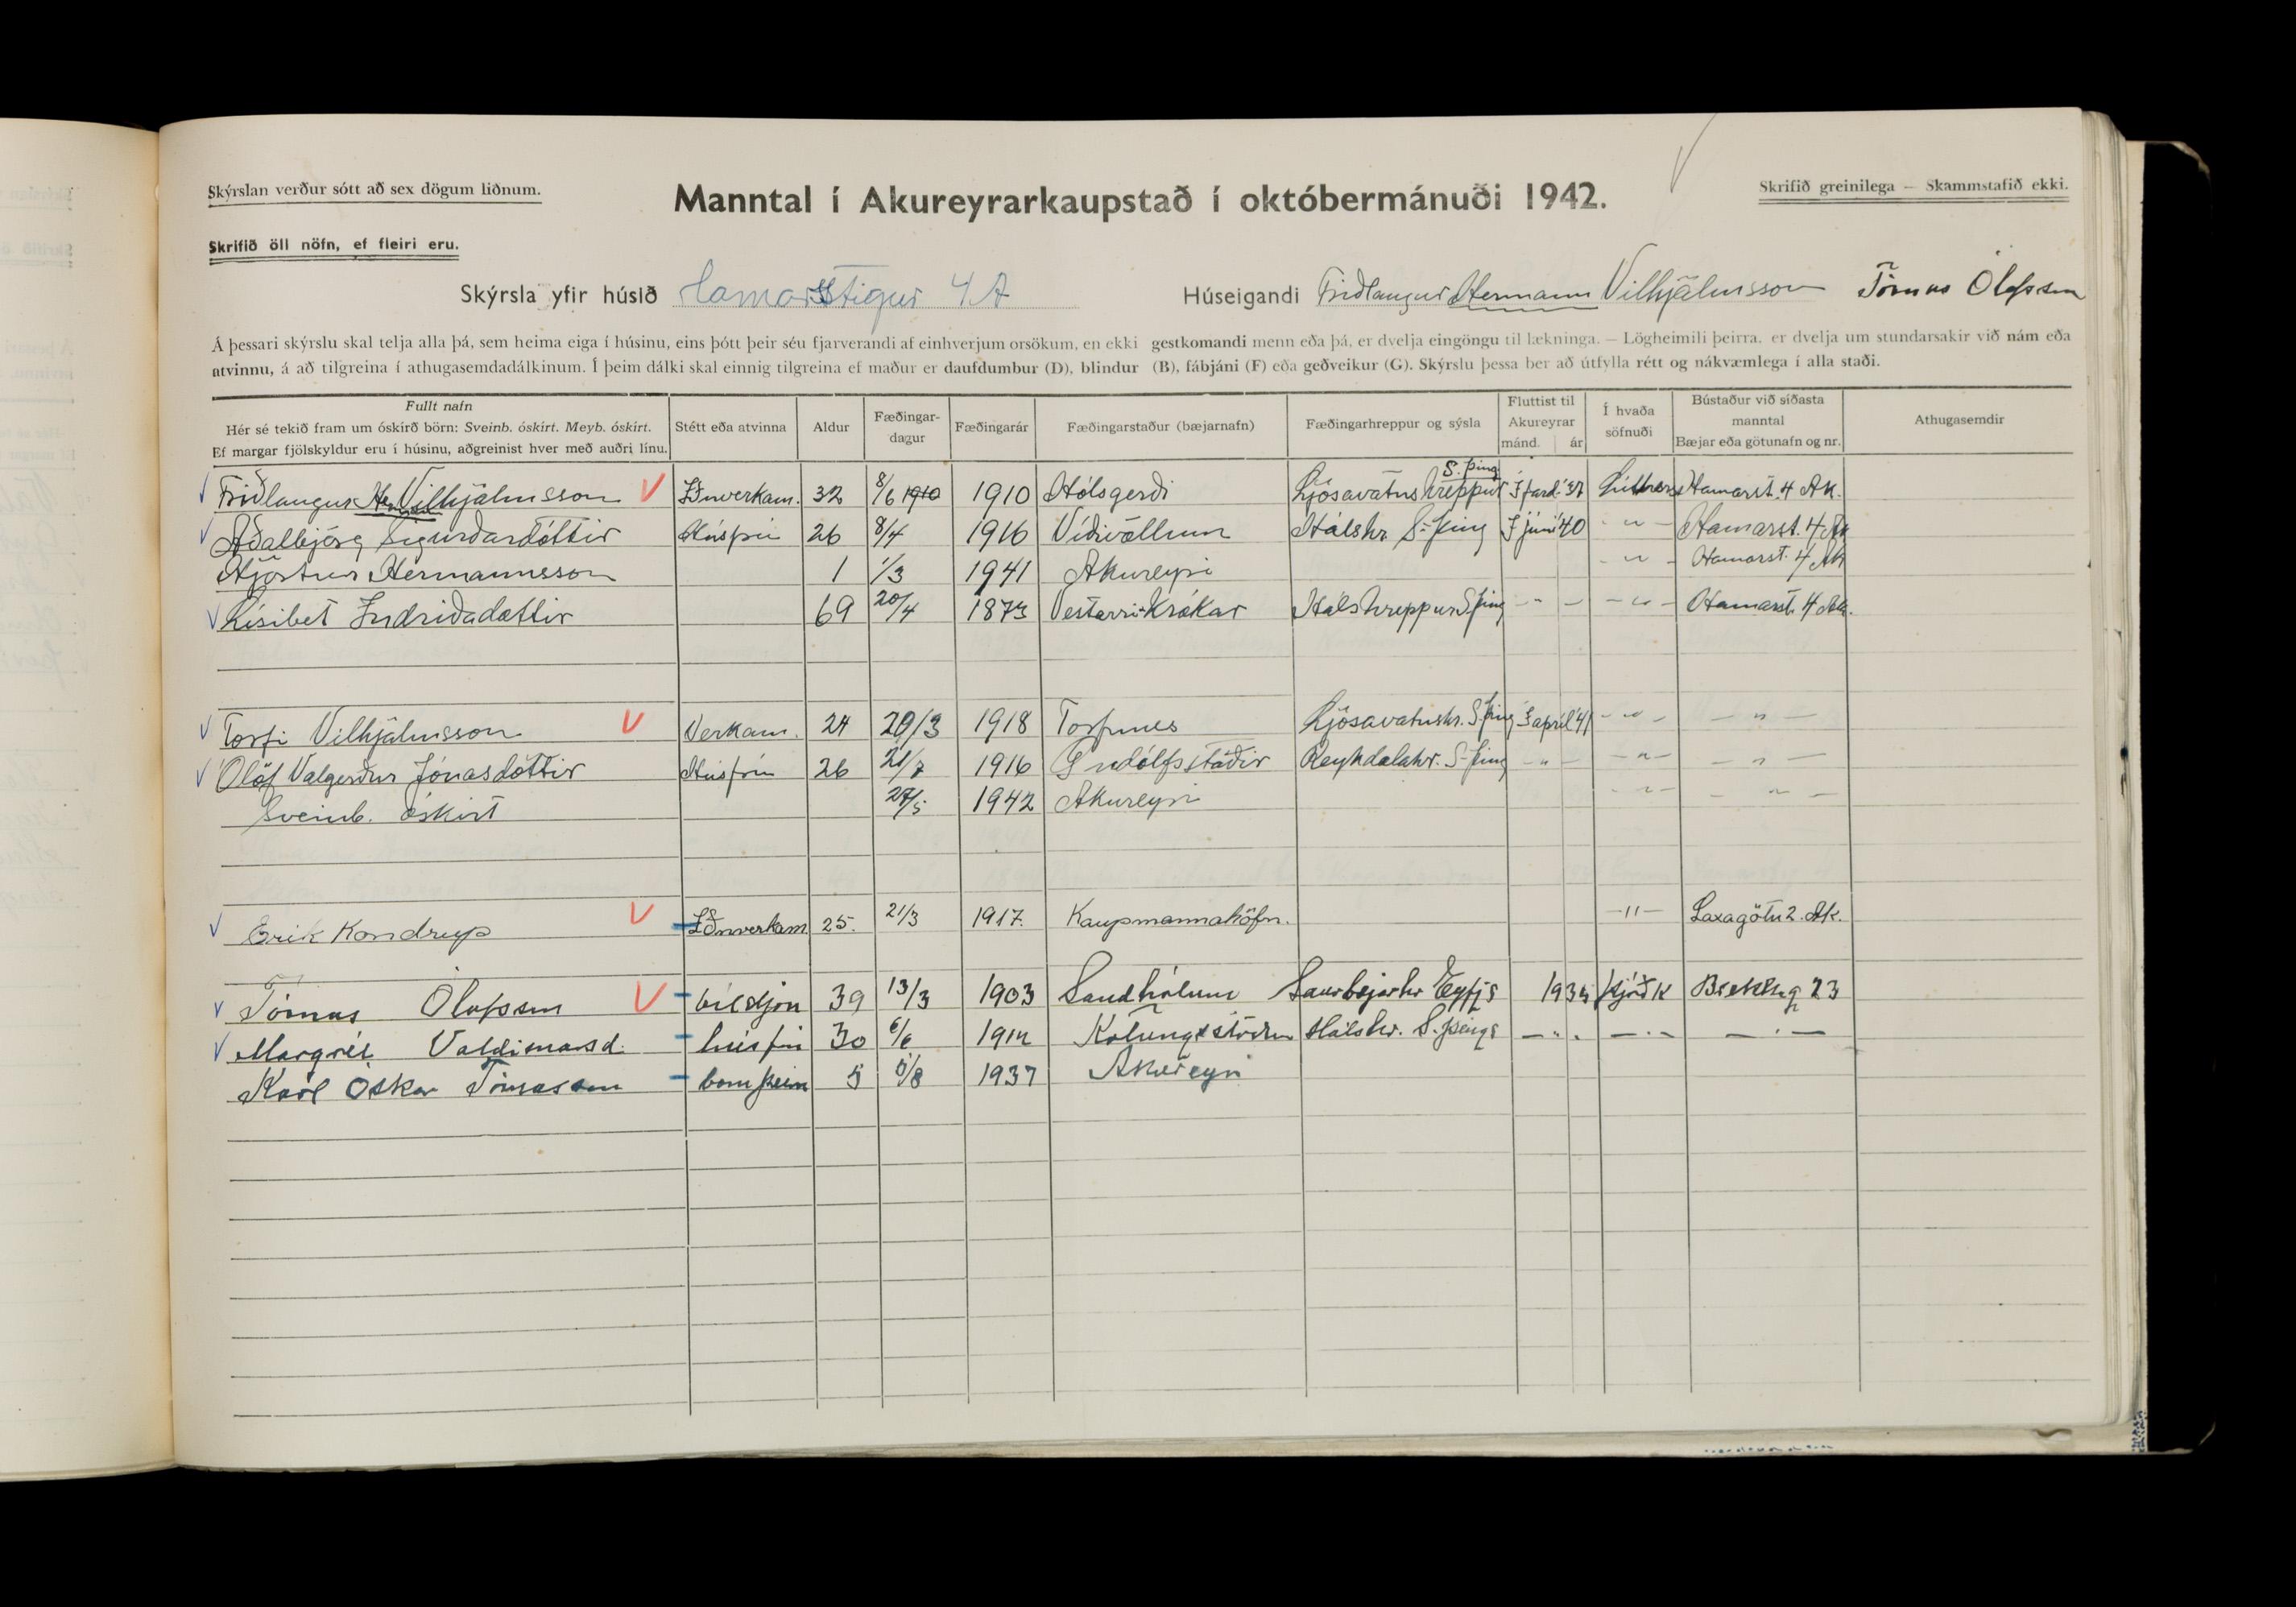 Skýrslan verður sótt að sex dögum liðnum.
Manntal í Akureyrarkaupstað í októbermánuði 1942.
Skrifið greinilega — Skammstafið ekki.
Skrifið öll nöfn, ef fleiri eru.
Skýrsla yfir húsið Hamarsstígur 4 A Húseigandi Friðlaugur Hermann Vilhjálmsson Tómas Ólafsson
Á þessari skýrslu skal telja alla þá, sem heima eiga í húsinu, eins þótt þeir séu fjarverandi af einhverjum orsökum, en ekki gestkomandi menn eða þá, er dvelja eingöngu til lækninga. — Lögheimili þeirra, er dvelja um stundarsakir við nám eða
atvinnu, á að tilgreina í athugasemdadálkinum. Í þeim dálki skal einnig tilgreina ef maður er daufdumbur (D), blindur (B), fábjáni (F) eða geðveikur (G). Skýrslu þessa ber að útfylla rétt og nákvæmlega í alla staði.
Fullt nafn Hér sé tekið fram um óskírð börn: Sveinb. óskírt. Meyb. óskírt. Ef margar fjölskyldur eru í húsinu, aðgreinist hver með auðri línu. Stétt eða atvinna Aldur Fæðingardagur Fæðingarár Fæðingarstaður (bæjarnafn) Fæðingarhreppur og sýsla Fluttist til Akureyrar mánd. ár Í hvaða söfnuði Bústaður við síðasta manntal Bæjar eða götunafn og nr. Athugasemdir
Friðlaugur Hermann Vilhjálmsson V Iðnverkam. 32 8/6 1910 1910 Hólsgerði Ljósavatnshreppur S. Þing Í fard. '37 Luthers Hamarst. 4 Ak.
Aðalbjörg Sigurðardóttir Húsfrú 26 8/4 1916 Víðivöllum Hálshr. S-Þing Í júní '40 - " - Hamarst. 4 Ak
Hjörtur Hermannsson 1 1/3 1941 Akureyri - " - Hamarst. 4 Ak
Lísibet Indriðadóttir 69 20/4 1873 Vestari-Krókar Hálshreppur S.Þing - " - - " - Hamarst. 4 Ak.
Torfi Vilhjálmsson V Verkam. 24 20/3 1918 Torfunes Ljósavatnshr. S-Þing Í apríl '41 - " - - " -
Ólöf Valgerður Jónasdóttir Húsfrú 26 21/7 1916 Gnðólfsstaðir Reykdalahr. S-Þing - " - - " - - " -
Sveinb. óskírt 27/5 1942 Akureyri - " - - " -
Erik Kondrup V Iðnverkam 25. 21/3 1917. Kaupmannahöfn. - " - Laxagötu 2. Ak.
Tómas Ólafsson V bílstjóri 39 13/3 1903 Sandhólum Saurbæjarhr Eyfjs 1934 Þjóðk Brekkug 23
Margrét Valdimarsd. húsfrú 30 6/6 1912 Kotungsstöðum Hálshr. S. Þings - " - - " - - " -
Karl Óskar Tómasson barn þeirra 5 5/8 1937 Akureyri